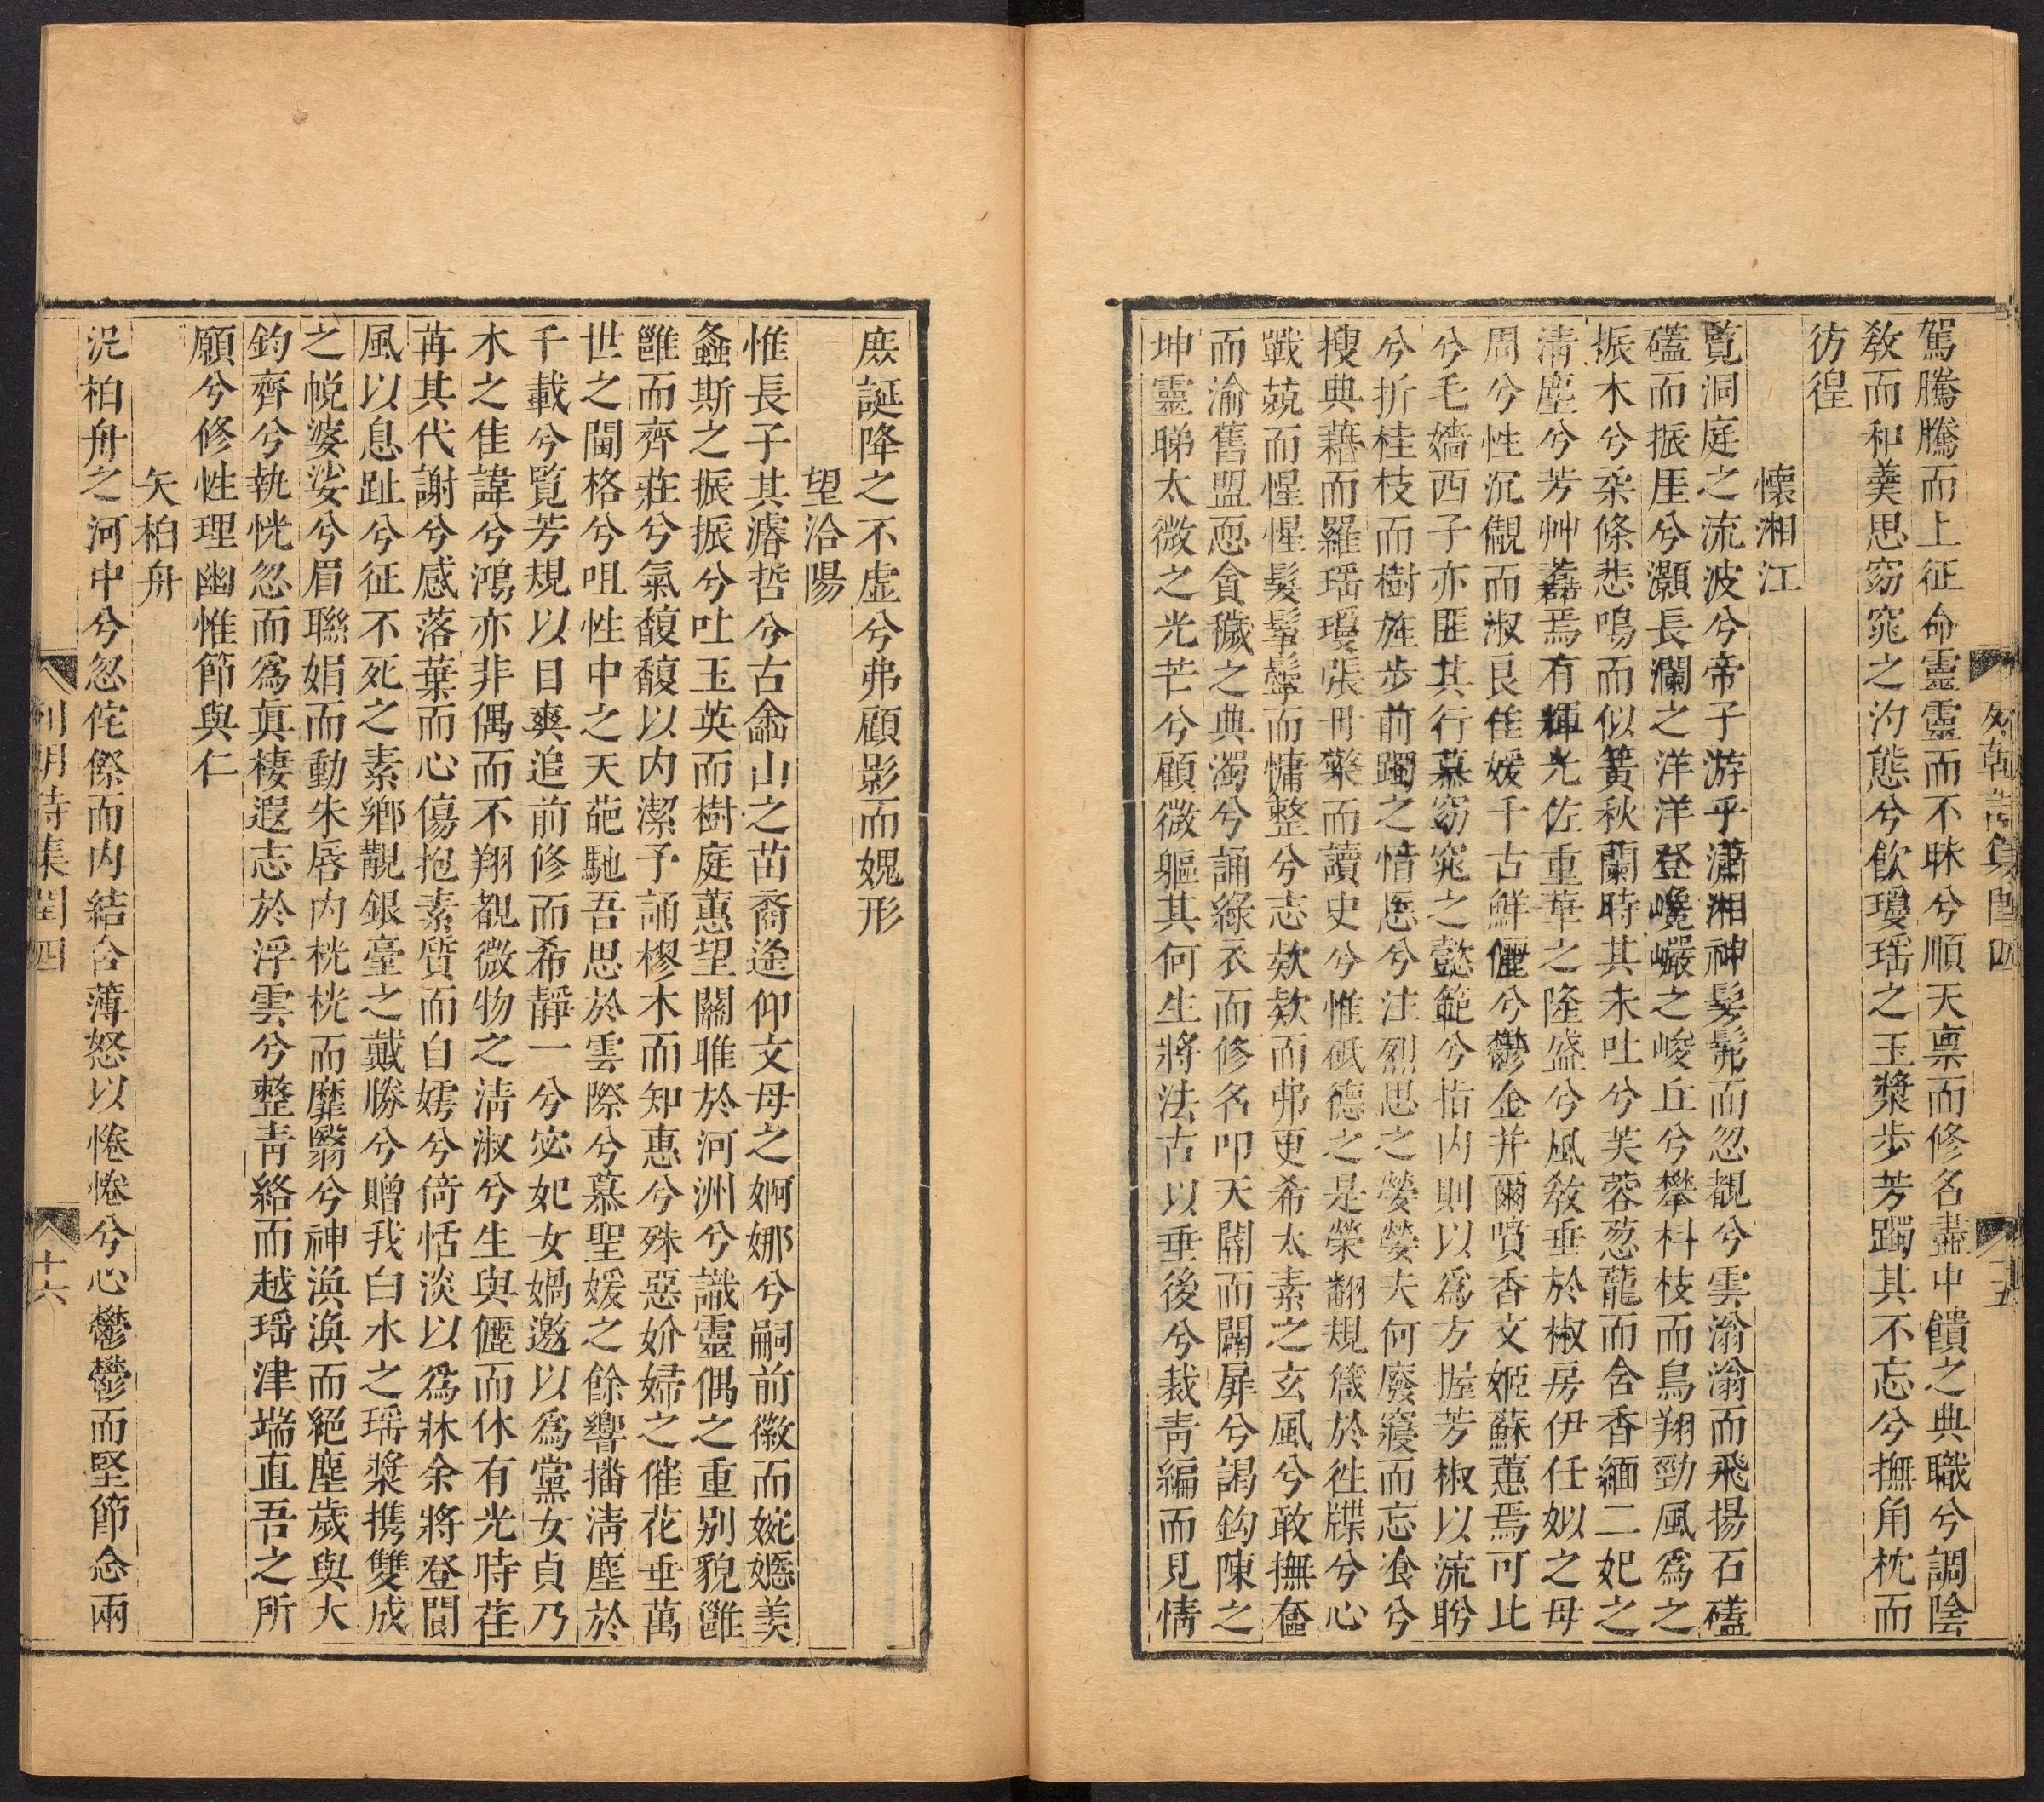 駕騰騰而上征命靈靈而不昧兮順天禀而修名盡中饋之典職兮調陰
教而和羹思窈窕之汋態兮飲瓊瑶之玉漿步芳躅其不忘兮撫角枕而
彷徨
懷湘江
覽洞庭之流波兮帝子游乎瀟湘神髣髴而忽覩兮雲滃滃而飛揚石礚
礚而振厓兮灝長瀾之洋洋登巉巖之峻丘兮攀科枝而鳥翔勁風爲之
振木兮桒條悲鳴而似簧秋蘭時其未吐兮芙蓉葱蘢而含香緬二妃之
清塵兮芳艸蘂焉有輝光佐重華之隆盛兮風教垂於椒房伊任姒之母
周兮性沉覿而淑良佳媛千古鮮儷兮鬱金并爾噴香文姬蘇蕙焉可比
兮毛嬙西子亦匪其行慕窈窕之懿範兮指内則以爲方握芳椒以流盻
兮折桂枝而樹旌步前躅之愔慝兮注烈思之嫈嫈夫何廢寢而忘飡兮
搜典藉而羅瑶瓊張毌檠而讀史兮惟砥德之是榮翻規箴於徃牒兮心
戰兢而惺惺髮鬇鬡而慵整兮志欻欻而弗更希太素之玄風兮敢撫奩
而渝舊盟恧貪穢之典濁兮誦綠衣而修名叩天閽而闢扉兮謁鈎陳之
坤靈睇太微之光芒兮顧微軀其何生將法古以垂後兮裁靑編而見情
列朝詩集閏四
十五
庶誕降之不虚兮弗顧影而媿形
望洽陽
惟長子其濬哲兮古嵞山之苗裔遙仰文母之婀娜兮嗣前徽而婉嫕美
螽斯之振振兮吐玉英而樹庭蕙望關雎於河洲兮識靈偶之重别貌雝
雝而齊莊兮氣馥馥以内潔予誦樛木而知惠兮殊惡妎婦之催花垂萬
世之閫格兮咀性中之天葩馳吾思於雲際兮慕聖媛之餘響播淸塵於
千載兮覽芳規以目爽追前修而希靜一兮宓妃女媧邀以爲黨女貞乃
木之佳諱兮鴻亦非偶而不翔覩微物之淸淑兮生與儷而休有光時荏
苒其代謝兮感落葉而心傷抱素質而自嫮兮倚恬淡以爲牀余將登閬
風以息趾兮征不死之素鄉觀銀臺之戴勝兮贈我白水之瑶漿携雙成
之帨婆娑兮眉聯娟而動朱唇内恍恍而靡翳兮神渙渙而絕塵歲與大
鈞齊兮執恍忽而爲眞棲遐志於浮雲兮整靑絡而越瑶津端直吾之所
願兮修性理幽惟節與仁
矢柏舟
汎柏舟之河中兮忽侘傺而内結含薄怒以惓惓兮心鬱鬱而堅節念兩
列朝詩集閏四
十六